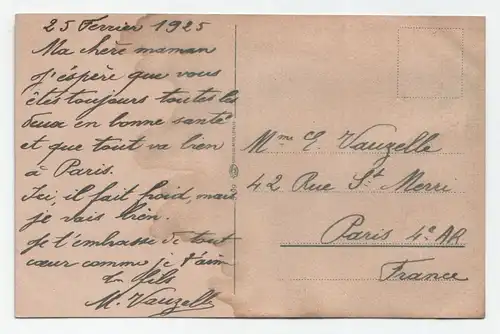 25 Fevrier 1925
Ma chère maman
J'éspère que vous
êtes toujours toutes les
deux en bonne santé
et que tout va bien
à Paris.
Ici, il fait froid, mais
je vais bien.
Je t'embrasse de tout
cœur comme je t'aime
ton fils
M. Vauzelle
Mme E. Vauzelle
42 Rue St Merri
Paris 4e AR
France